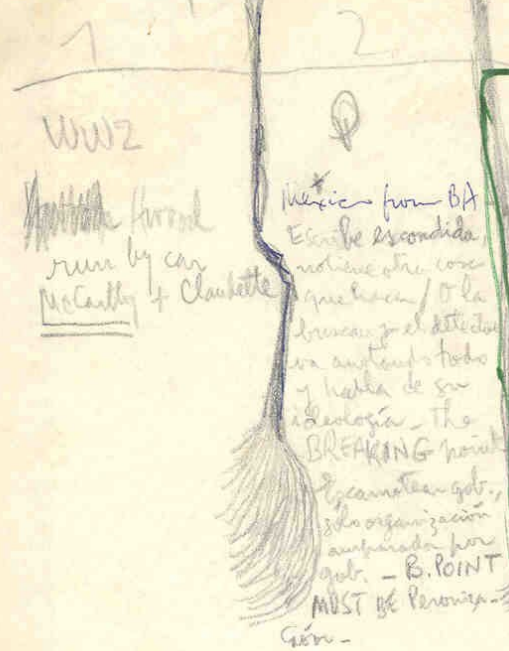 1
2
WW2
run by car
McCarthy + Claudette
México from BA
Escribe escondida,
no tiene otra cosa
que hacer / O la
buscan y el detective
va anotando todo
y habla de su
ideología - The
BREAKING point
Escamotean gob.,
sólo organización
amparada por
gob. - B. POINT
MUST BE Peroniza-
ción -